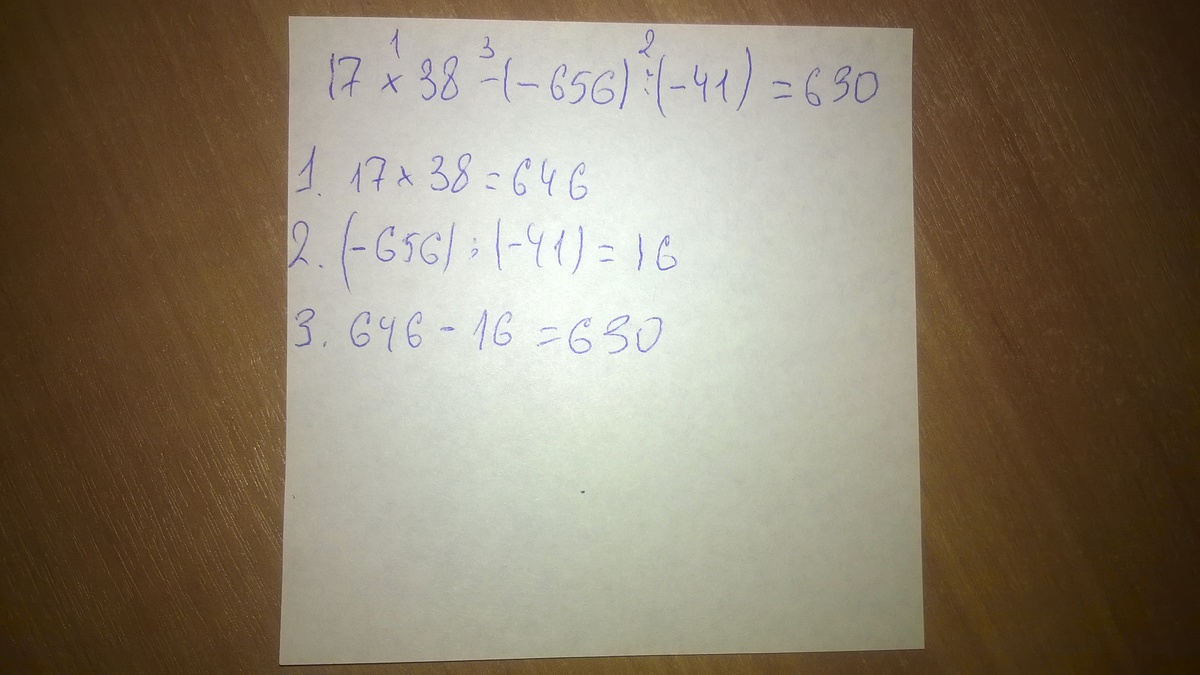 1 3 2
17 × 38 - (-656) : (-41) = 630
1. 17 × 38 = 646
2. (-656) : (-41) = 16
3. 646 - 16 = 630